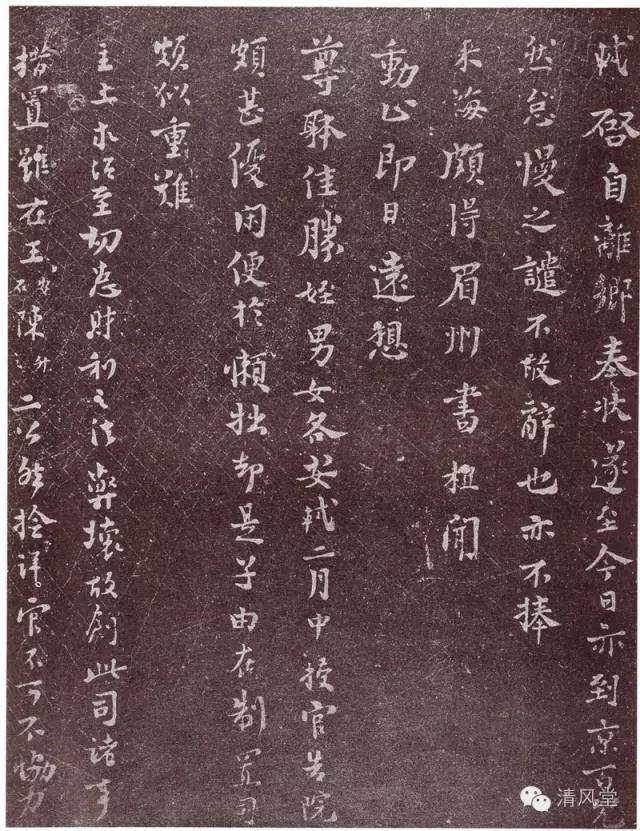 軾啓自離鄉奉狀遂至今日亦到京百冗
然怠慢之譴不敢辭也亦不捧
來誨頗得眉州書粗聞
動止即日遠想
尊體佳勝姪男女各安軾二月中授官告院
頗甚優閑便於懶拙却是子由在制置司
頗似重難
主上求治至切患財利之法弊壞故創此司諸事
措置雖在王陳升二公然檢詳官不可不協力
清风堂